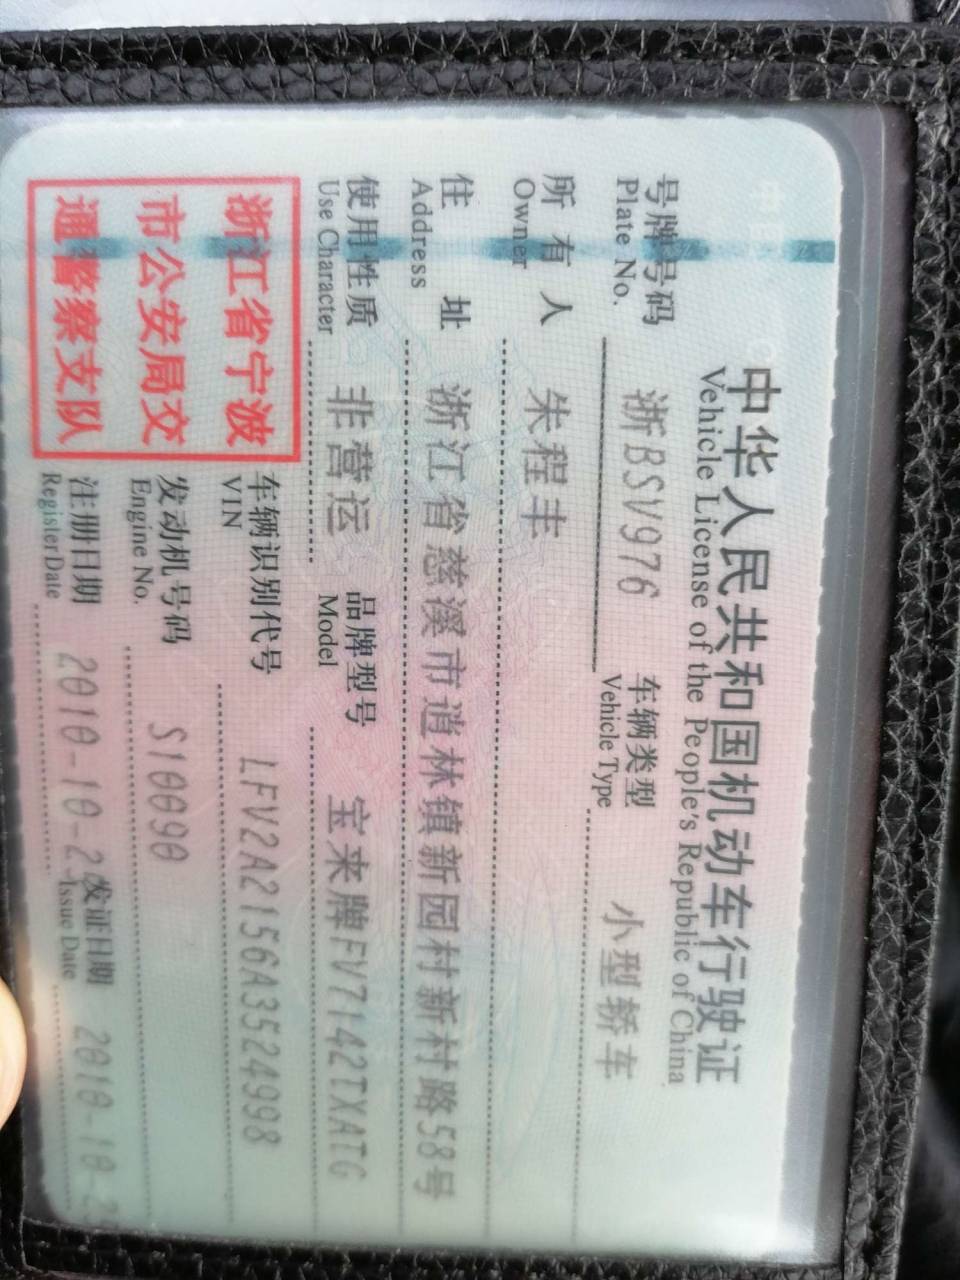 中华人民共和国机动车行驶证
Vehicle License of the People's Republic of China
号牌号码 浙BSV976 车辆类型 小型轿车
Plate No. Vehicle Type
所有人 朱程丰
Owner
住址 浙江省慈溪市逍林镇新园村新村路58号
Address
使用性质 非营运 品牌型号 宝来牌FV7142TXATG
Use Character Model
浙江省宁波
市公安局交
通警察支队
车辆识别代号 LFV2A2156A3524998
VIN
发动机号码 S10090
Engine No.
注册日期 2010-10-2 发证日期 2010-10-2
Register Date Issue Date